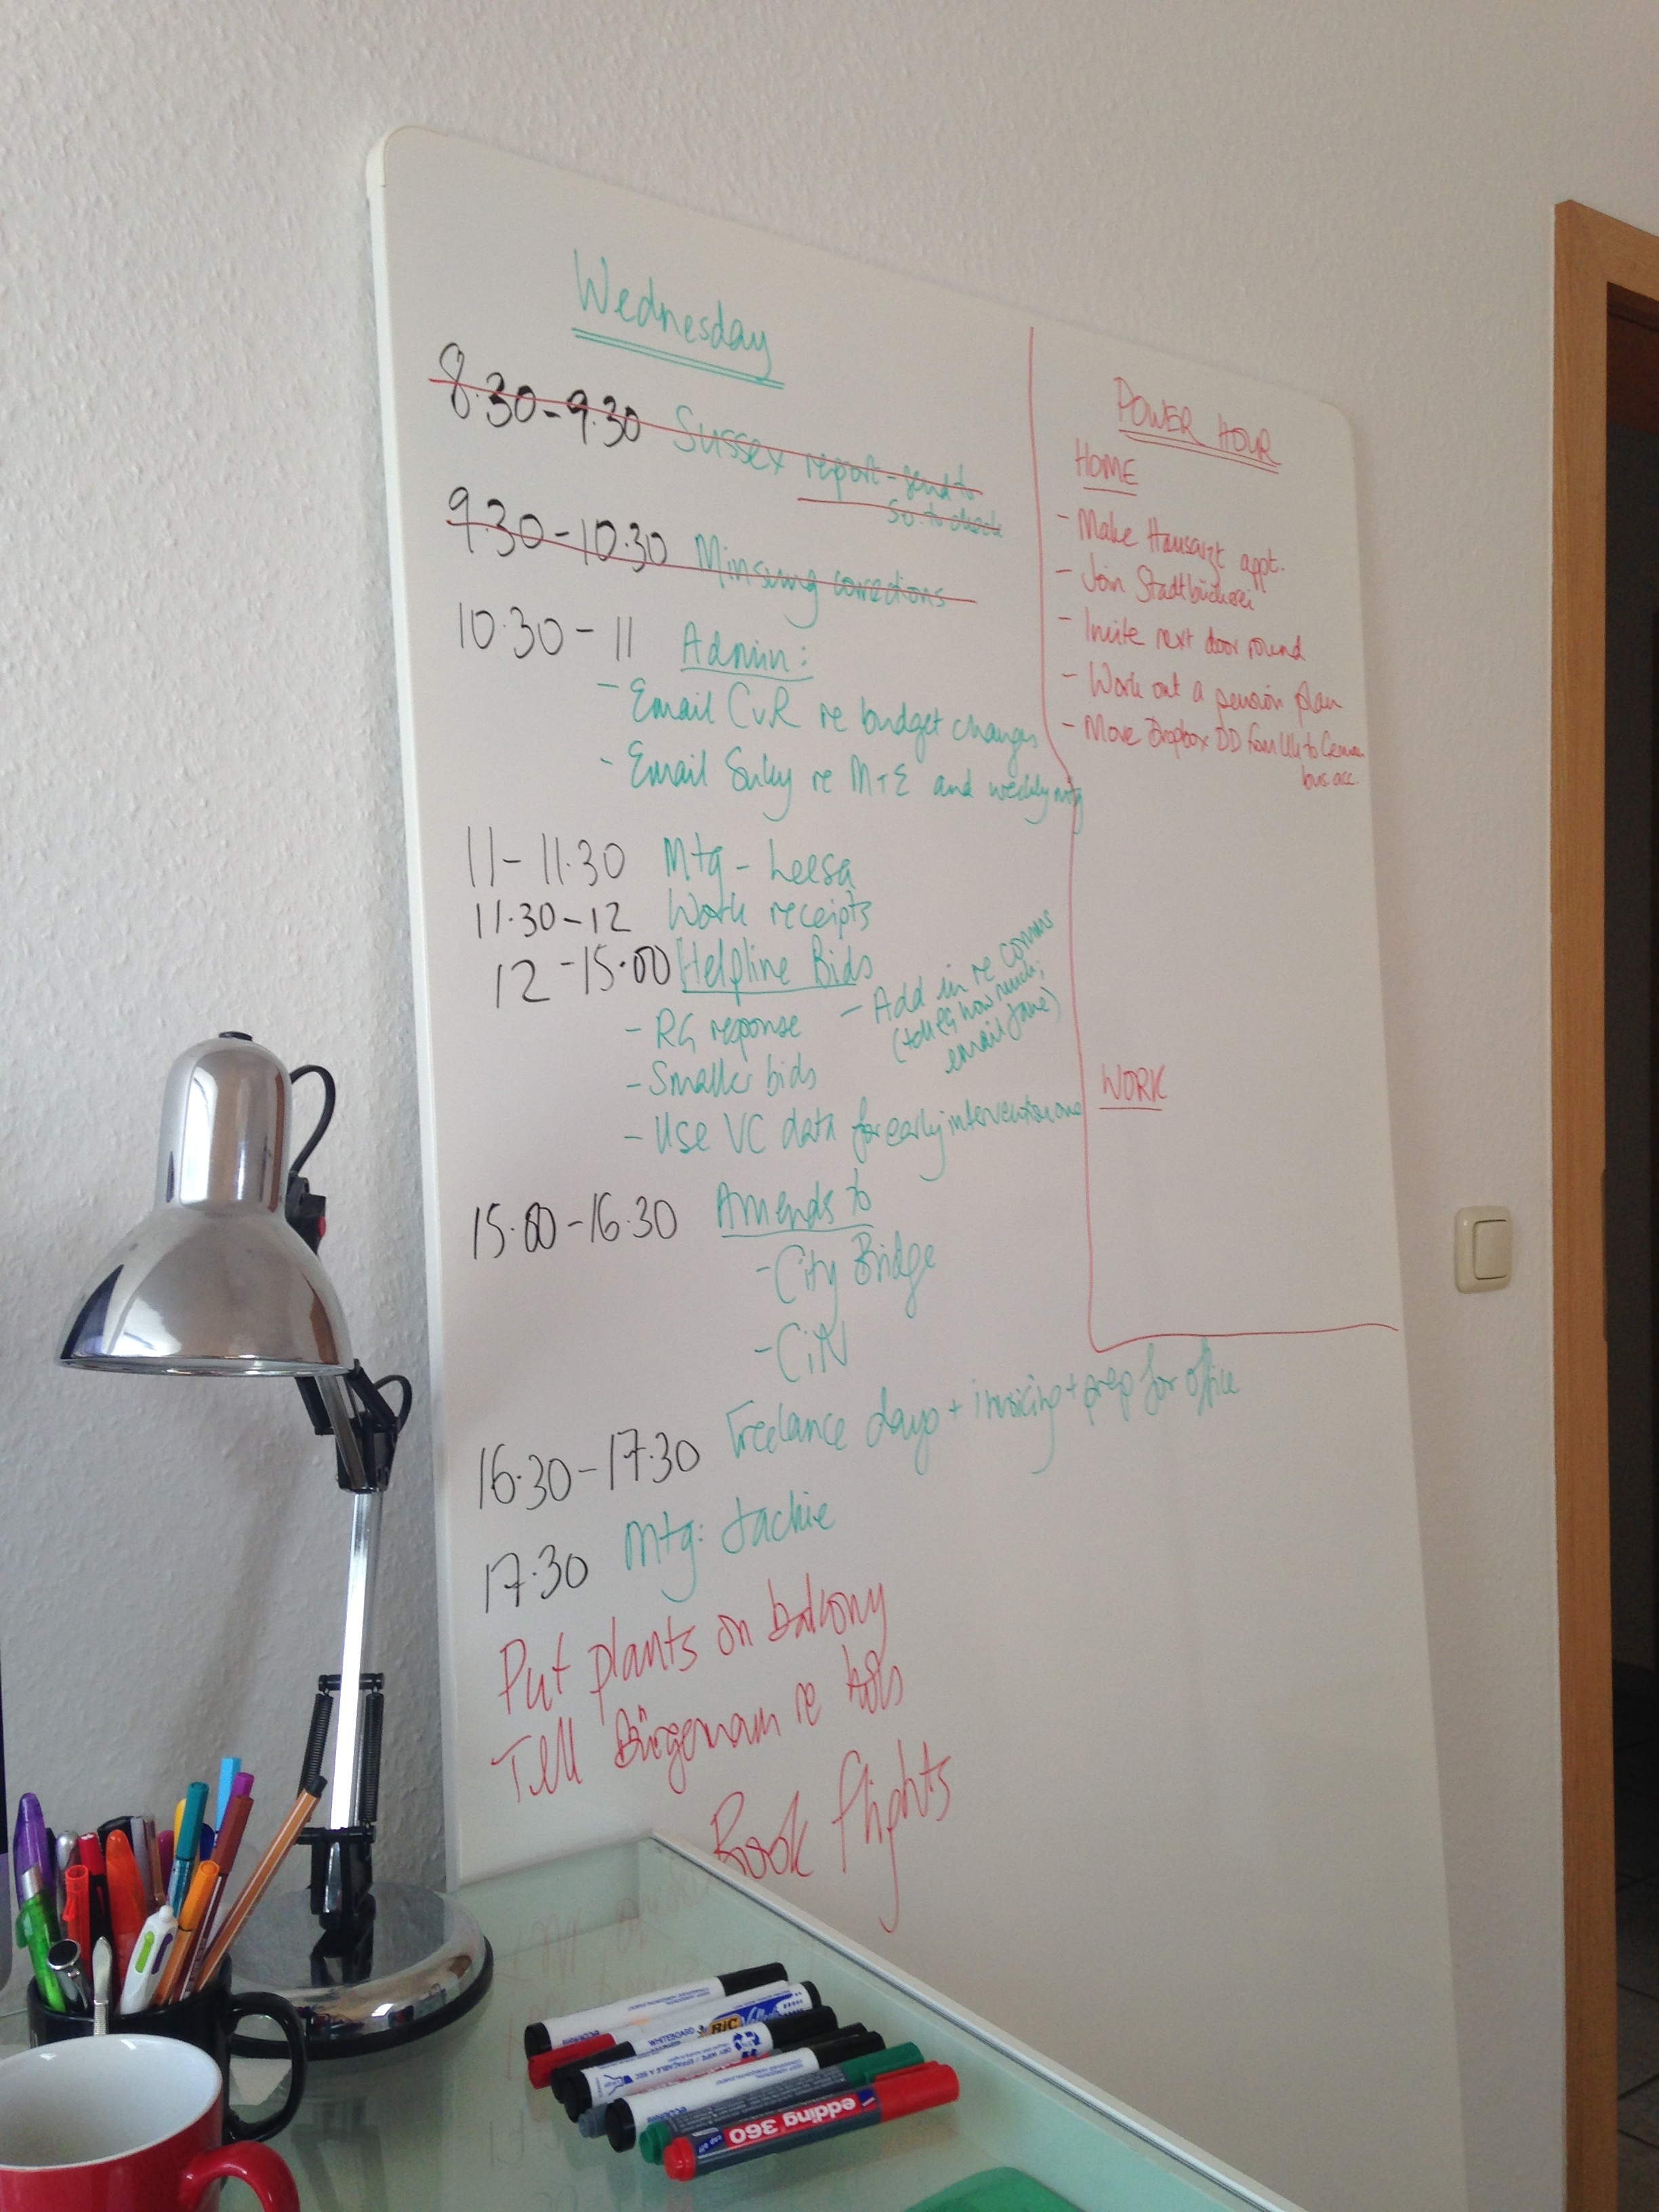 Wednesday
8.30-9.30 Sussex report - send to
So. to check
9.30-10.30 Minsung corrections
10.30-11 Admin:
- Email CvR re budget changes
- Email Suky re M+E and weekly mtg
11-11.30 Mtg - Leesa
11.30-12 Work receipts
12-15.00 Helpline Bids
- RG response
- Smaller bids
- Use VC data for early intervention one
- Add in re comms
how much;
email Jane)
15.00-16.30 Amends to
- City Bridge
- CiN
16.30-17.30 Freelance days + invoicing + prep for office
17.30 Mtg: Jackie
Put plants on balcony
Tell re
Book flights
POWER HOUR
HOME
- Make Hausarzt appt.
- Join Stadtbücherei
- Invite next door round
- Work out a pension plan
- Move Dropbox DD from UK to German
bus acc.
WORK
BIC
edding 360